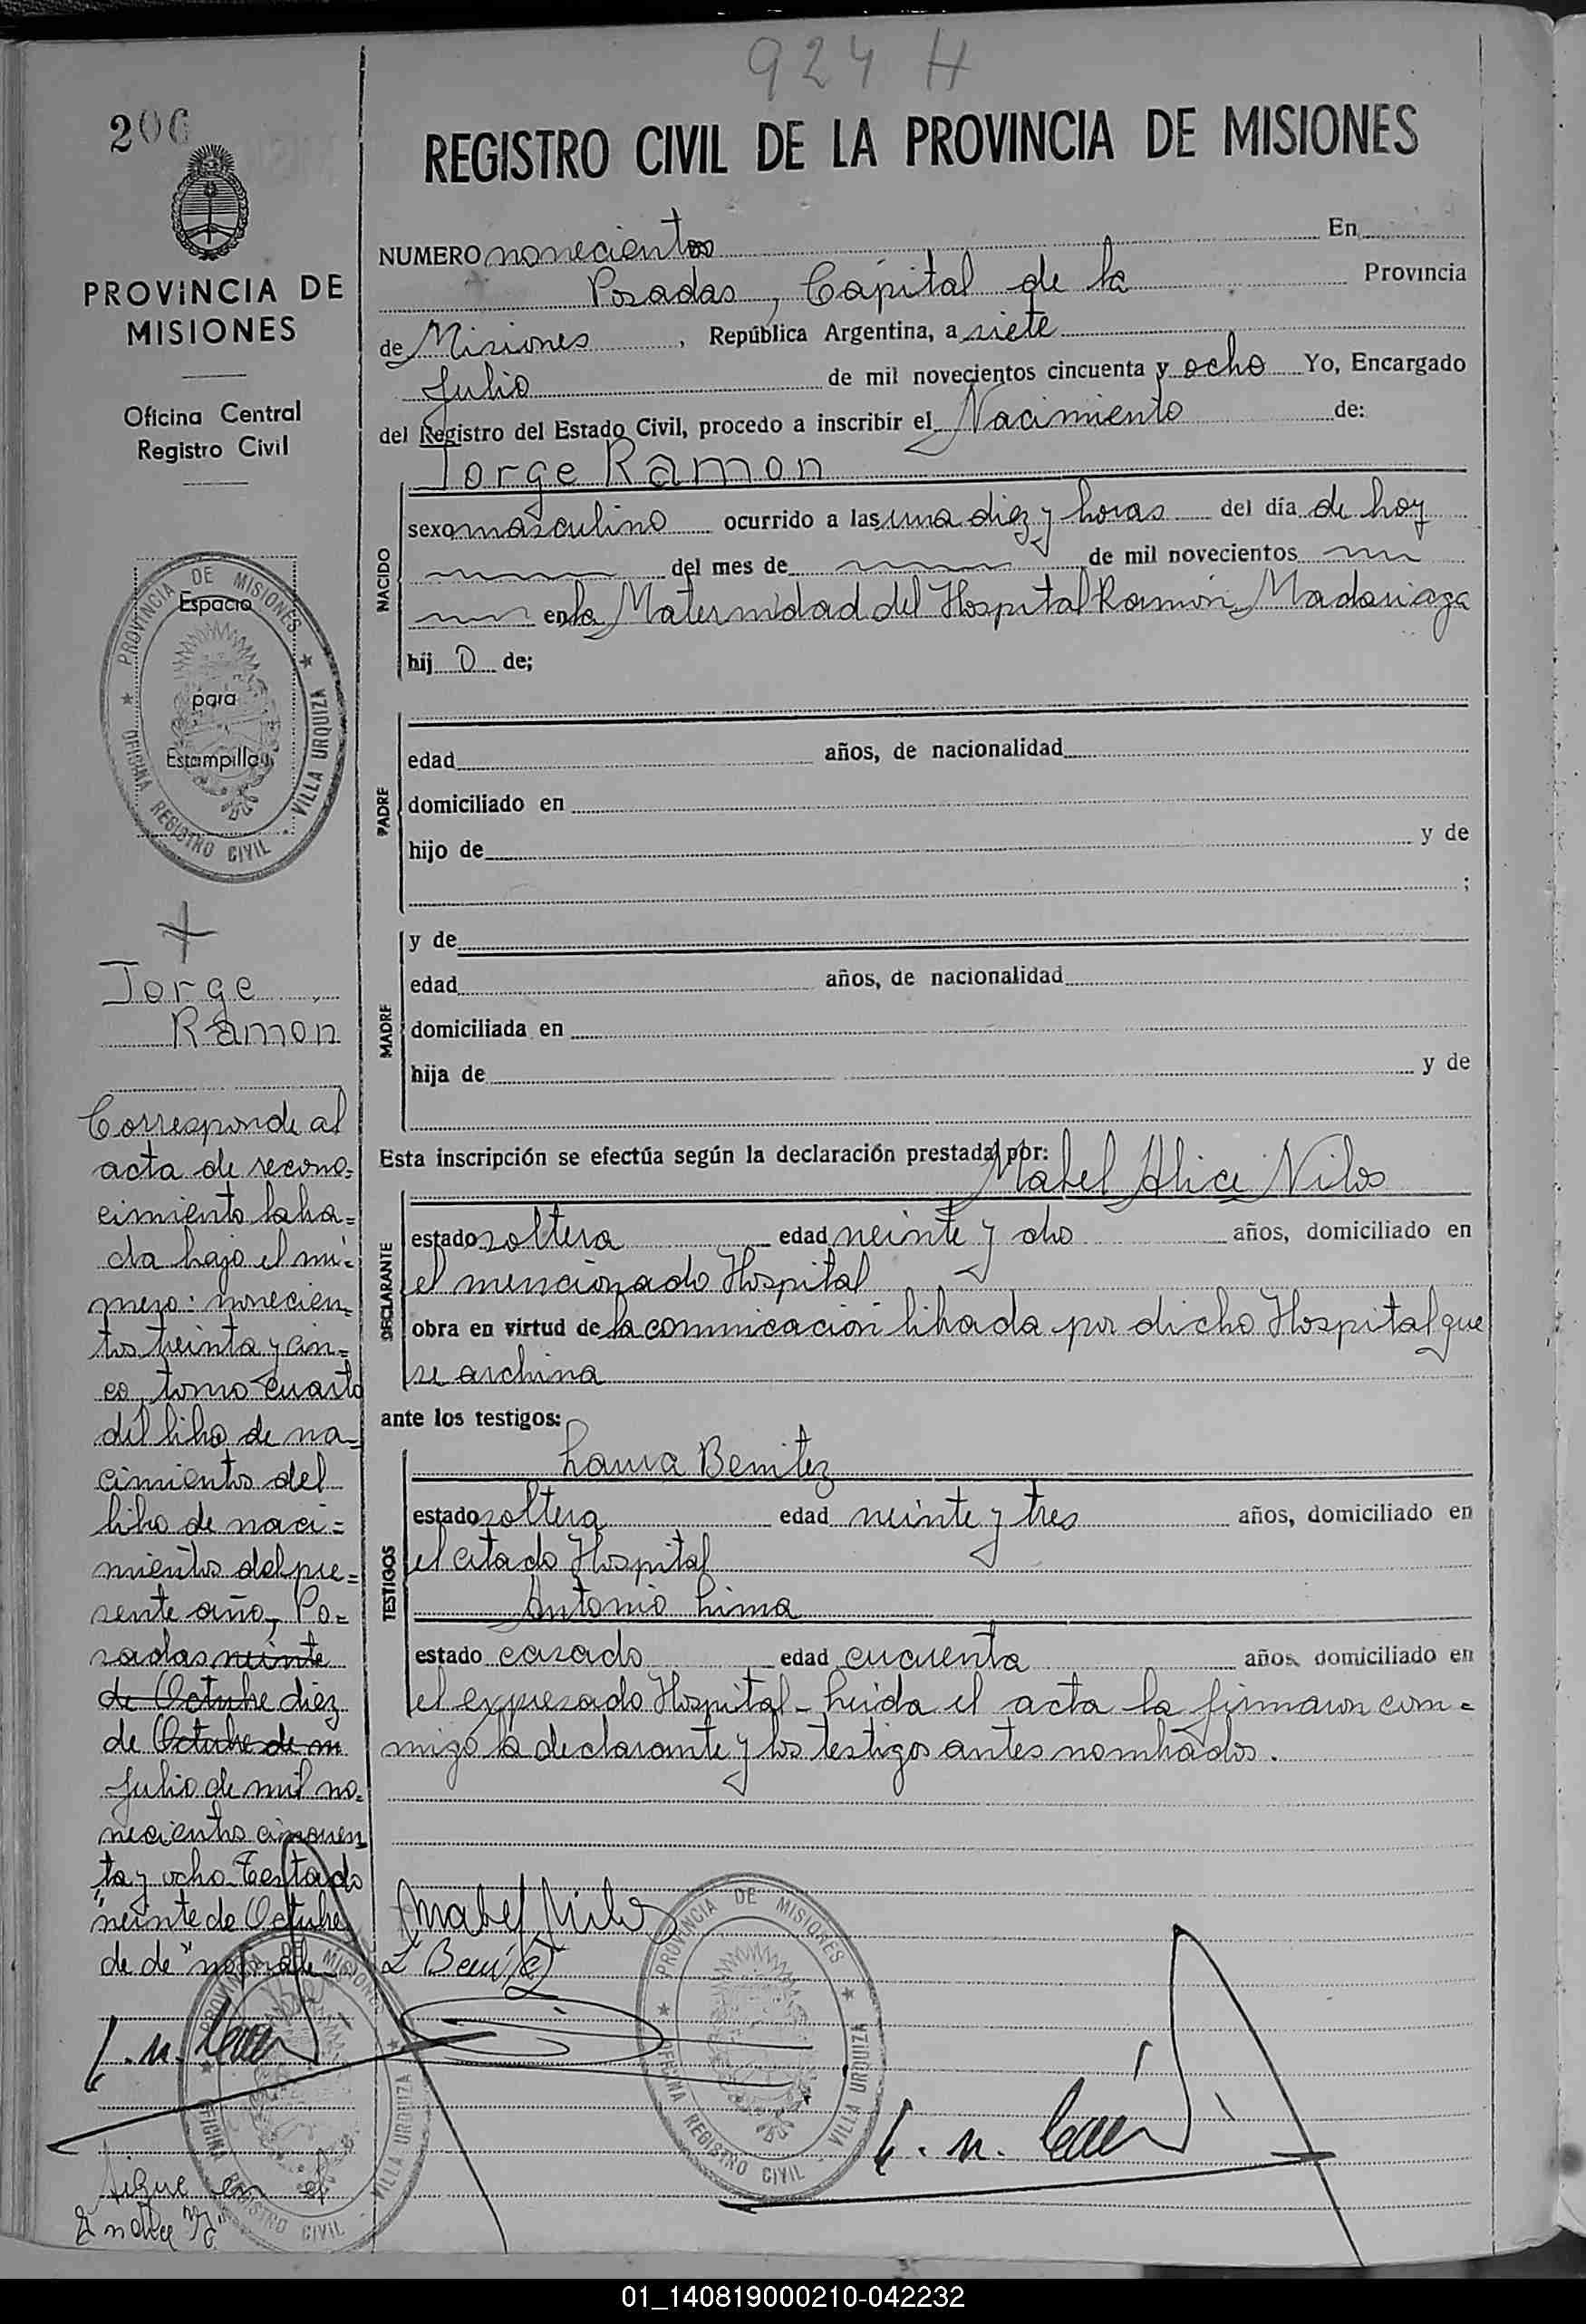 924 H
206
REGISTRO CIVIL DE LA PROVINCIA DE MISIONES
PROVINCIA DE
MISIONES
Oficina Central
Registro Civil
PROVINCIA DE MISIONES
OFICINA REGISTRO CIVIL - VILLA URQUIZA
Espacio
para
Estampilla
Jorge
Ramon
Corresponde al
acta de recono=
cimiento labra=
da bajo el nú=
mero: novecien=
tos treinta y cin=
co, tomo cuarto
del libro de na=
cimientos del
libro de naci=
mientos del pre=
sente año, Po=
sadas veinte
de Octubre diez
de Octubre de m
Julio de mil no
vecientos cincuen
ta y ocho. Testado
"veinte de Octubre
de de" no vale
Sigue en el
NUMERO novecientos En
Posadas, Cápital de la Provincia
de Misiones, República Argentina, a siete
Julio de mil novecientos cincuenta y ocho Yo, Encargado
del Registro del Estado Civil, procedo a inscribir el Nacimiento de:
Jorge Ramon
NACIDO
sexo masculino ocurrido a las una diez y horas del día de hoy
del mes de de mil novecientos
en la Maternidad del Hospital Ramón Madariaga
hij o de;
PADRE
edad años, de nacionalidad
domiciliado en
hijo de y de
;
MADRE
y de
edad años, de nacionalidad
domiciliada en
hija de y de
Esta inscripción se efectúa según la declaración prestada por:
Mabel Alice Vilos
DECLARANTE
estado soltera edad veinte y ocho años, domiciliado en
el mencionado Hospital
obra en virtud de la comunicación librada por dicho Hospital que
se archiva
ante los testigos:
Laura Benitez
TESTIGOS
estado soltera edad veinte y tres años, domiciliado en
el citado Hospital
Antonio Lima
estado casado edad cuarenta años domiciliado en
el expresado Hospital - Leida el acta la firmaron con=
migo la declarante y los testigos antes nombrados.
Mabel Vilos
L Benitez
PROVINCIA DE MISIONES
OFICINA REGISTRO CIVIL - VILLA URQUIZA
PROVINCIA DE MISIONES
OFICINA REGISTRO CIVIL - VILLA URQUIZA
01_140819000210-042232